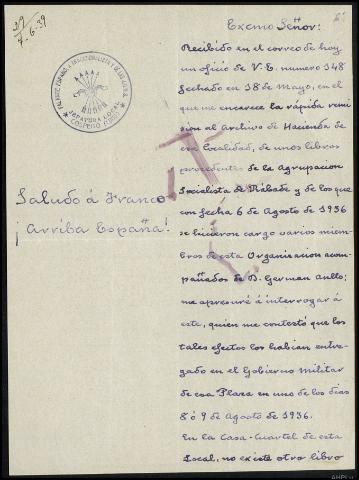 29
7-6-39
FALANGE ESPAÑOLA TRADICIONALISTA Y DE LAS J.O.N.S.
JEFATURA LOCAL
COSPEITO (LUGO)
Saludo á Franco
¡Arriba España!
Excmo Señor:
Recibido en el correo de hoy
un oficio de V.E. numero 348
fechado en 18 de Mayo, en el
que me encarece la rápida remi
sión al Archivo de Hacienda de
esa localidad, de unos libros
procedentes de la Agrupacion
Socialista de Rábade y de los que
con fecha 6 de Agosto de 1936
se hicieron cargo varios miem-
bros de esta Organisacion acom-
pañados de D. German Aullo;
me apresuré á interrogar á
este, quien me contestó que los
tales efectos los habian entre-
gado en el Gobierno Militar
de esa Plaza en uno de los dias
8 ó 9 de Agosto de 1936.
En la Casa-Cuartel de esta
Local, no existe otro libro
AHPLu